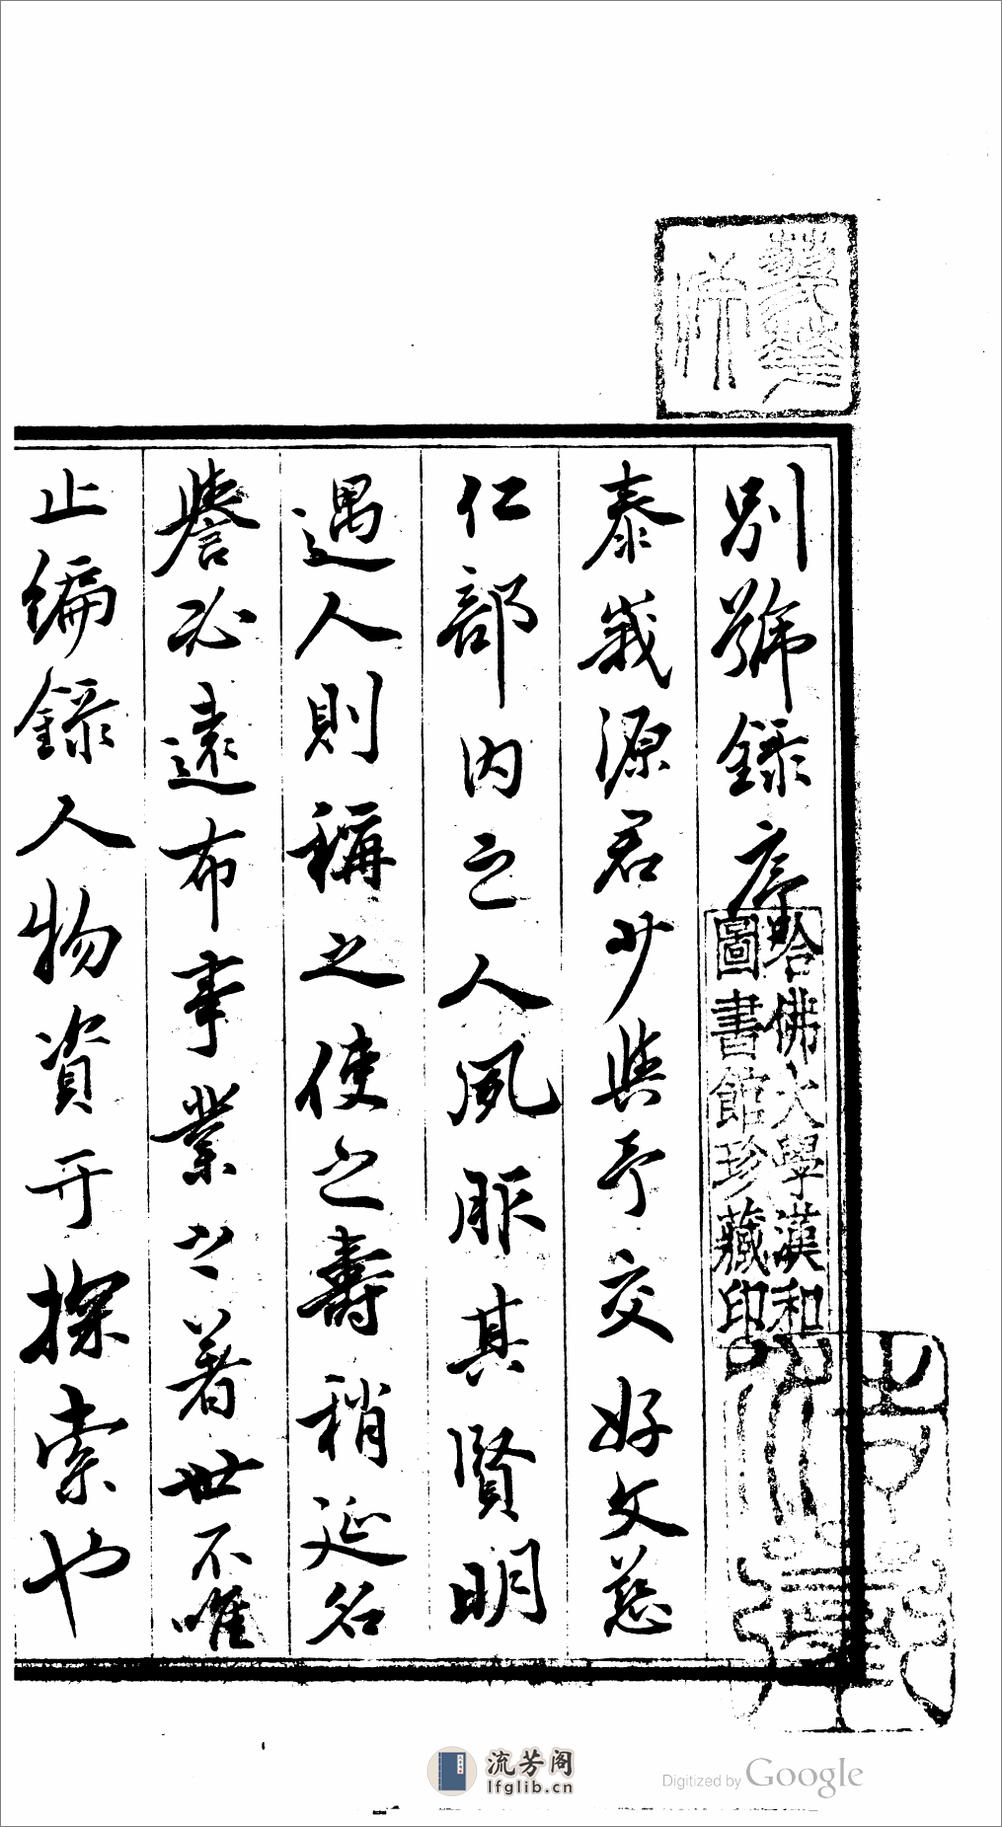 別號錄序
泰峩源君少與予交好文慈
仁部內之人夙服其賢明
遇人則稱之使之壽稍延名
譽必遠布事業之著世不唯
止編錄人物資于探索也
哈佛大學漢和
圖書館珍藏印
流芳阁
lfglib.cn
Digitized by Google